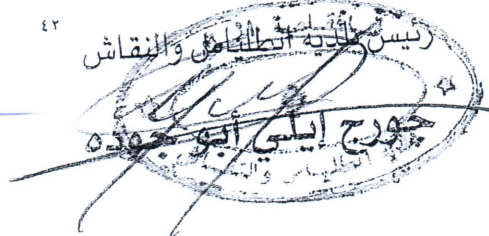 ٤٢
رئيس بلدية انطلياس والنقاش
جورج إيلي أبو جوده